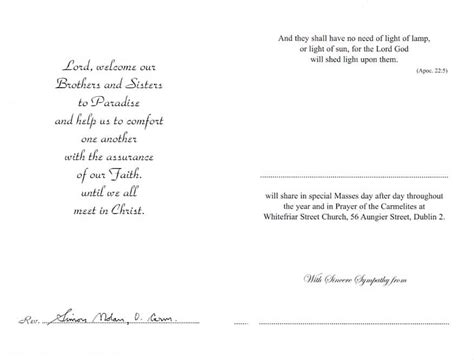 Lord, welcome our
Brothers and Sisters
to Paradise
and help us to comfort
one another
with the assurance
of our Faith.
until we all
meet in Christ.
Rev. Simon Nolan, O. Carm.
And they shall have no need of light of lamp,
or light of sun, for the Lord God
will shed light upon them.
(Apoc. 22:5)
will share in special Masses day after day throughout
the year and in Prayer of the Carmelites at
Whitefriar Street Church, 56 Aungier Street, Dublin 2.
With Sincere Sympathy from